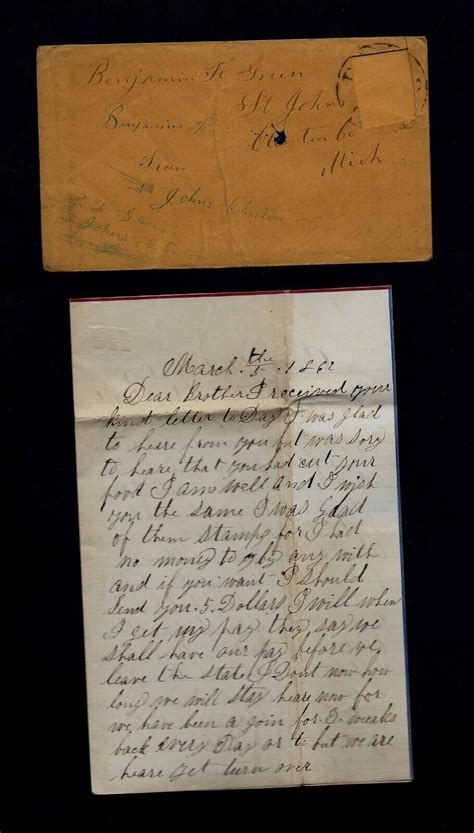 Benjamin F Green
St Johns
Clinton Co
Mich
Benjamin F.
Green
St Johns Clinton Co
March. the 5. 1862
Dear brother I received your
kind letter to Day I was glad
to heare from you but was sory
to heare that you had cut your
foot I Am well and I wish
you the same I was Glad
of them stamps for I had
no money to by any with
and if you want I should
Send you .5. Dollars I will when
I get my pay they say we
shall have our pay before we
leave the state I Dont now how
long we will stay heare now for
we have been a goin for 3 weeks
back every Day or to but we are
heare yet turn over